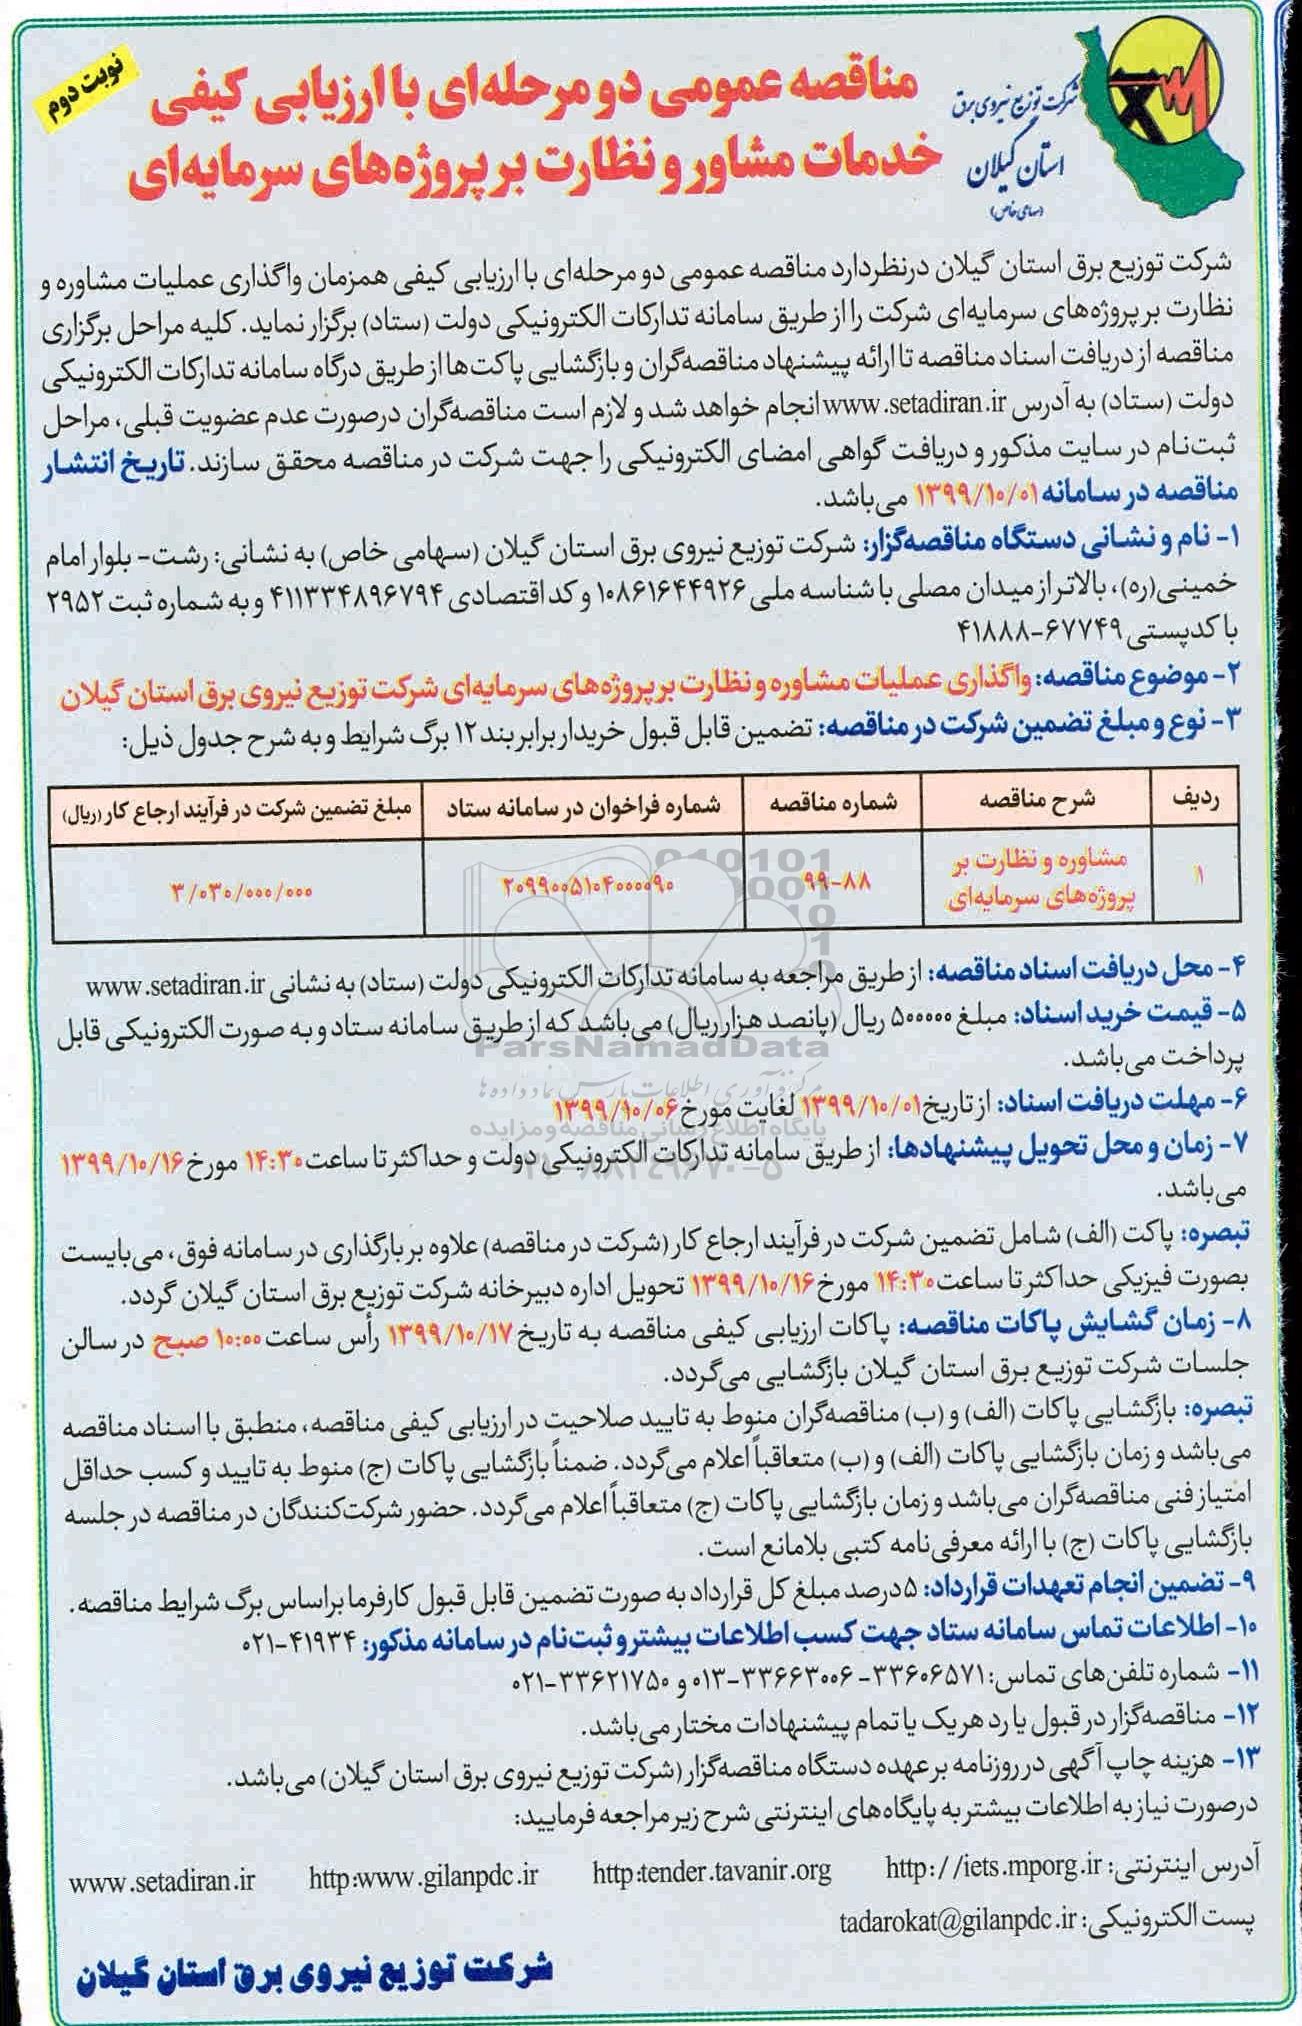 نوبت دوم
شرکت توزیع نیروی برق
استان گیلان
(سهامی خاص)
مناقصه عمومی دو مرحله‌ای با ارزیابی کیفی
خدمات مشاور و نظارت بر پروژه‌های سرمایه‌ای
شرکت توزیع برق استان گیلان درنظردارد مناقصه عمومی دو مرحله‌ای با ارزیابی کیفی همزمان واگذاری عملیات مشاوره و
نظارت بر پروژه‌های سرمایه‌ای شرکت را از طریق سامانه تدارکات الکترونیکی دولت (ستاد) برگزار نماید. کلیه مراحل برگزاری
مناقصه از دریافت اسناد مناقصه تا ارائه پیشنهاد مناقصه‌گران و بازگشایی پاکت‌ها از طریق درگاه سامانه تدارکات الکترونیکی
دولت (ستاد) به آدرس www.setadiran.ir انجام خواهد شد و لازم است مناقصه‌گران درصورت عدم عضویت قبلی، مراحل
ثبت‌نام در سایت مذکور و دریافت گواهی امضای الکترونیکی را جهت شرکت در مناقصه محقق سازند. تاریخ انتشار
مناقصه در سامانه ۱۳۹۹/۱۰/۰۱ می‌باشد.
۱- نام و نشانی دستگاه مناقصه‌گزار: شرکت توزیع نیروی برق استان گیلان (سهامی خاص) به نشانی: رشت- بلوار امام
خمینی(ره)، بالاتر از میدان مصلی با شناسه ملی ۱۰۸۶۱۶۴۴۹۲۶ و کد اقتصادی ۴۱۱۳۳۴۸۹۶۷۹۴ و به شماره ثبت ۲۹۵۲
با کدپستی ۶۷۷۴۹-۴۱۸۸۸
۲- موضوع مناقصه: واگذاری عملیات مشاوره و نظارت بر پروژه‌های سرمایه‌ای شرکت توزیع نیروی برق استان گیلان
۳- نوع و مبلغ تضمین شرکت در مناقصه: تضمین قابل قبول خریدار برابر بند ۱۲ برگ شرایط و به شرح جدول ذیل:
ردیف	شرح مناقصه	شماره مناقصه	شماره فراخوان در سامانه ستاد	مبلغ تضمین شرکت در فرآیند ارجاع کار (ریال)
۱	مشاوره و نظارت بر پروژه‌های سرمایه‌ای	۹۹-۸۸	۲۰۹۹۰۰۵۱۰۴۰۰۰۰۹۰	۳/۰۳۰/۰۰۰/۰۰۰
۴- محل دریافت اسناد مناقصه: از طریق مراجعه به سامانه تدارکات الکترونیکی دولت (ستاد) به نشانی www.setadiran.ir
۵- قیمت خرید اسناد: مبلغ ۵۰۰۰۰۰ ریال (پانصد هزار ریال) می‌باشد که از طریق سامانه ستاد و به صورت الکترونیکی قابل
ParsNamadData
پرداخت می‌باشد.
مرکز فرآوری اطلاعات پارس نماد داده ها
۶- مهلت دریافت اسناد: از تاریخ ۱۳۹۹/۱۰/۰۱ لغایت مورخ ۱۳۹۹/۱۰/۰۶
پایگاه اطلاع رسانی مناقصه و مزایده
۷- زمان و محل تحویل پیشنهادها: از طریق سامانه تدارکات الکترونیکی دولت و حداکثر تا ساعت ۱۴:۳۰ مورخ ۱۳۹۹/۱۰/۱۶
می‌باشد.
تبصره: پاکت (الف) شامل تضمین شرکت در فرآیند ارجاع کار (شرکت در مناقصه) علاوه بر بارگذاری در سامانه فوق، می‌بایست
بصورت فیزیکی حداکثر تا ساعت ۱۴:۳۰ مورخ ۱۳۹۹/۱۰/۱۶ تحویل اداره دبیرخانه شرکت توزیع برق استان گیلان گردد.
۸- زمان گشایش پاکات مناقصه: پاکات ارزیابی کیفی مناقصه به تاریخ ۱۳۹۹/۱۰/۱۷ رأس ساعت ۱۰:۰۰ صبح در سالن
جلسات شرکت توزیع برق استان گیلان بازگشایی می‌گردد.
تبصره: بازگشایی پاکات (الف) و (ب) مناقصه‌گران منوط به تایید صلاحیت در ارزیابی کیفی مناقصه، منطبق با اسناد مناقصه
می‌باشد و زمان بازگشایی پاکات (الف) و (ب) متعاقباً اعلام می‌گردد. ضمناً بازگشایی پاکات (ج) منوط به تایید و کسب حداقل
امتیاز فنی مناقصه‌گران می‌باشد و زمان بازگشایی پاکات (ج) متعاقباً اعلام می‌گردد. حضور شرکت‌کنندگان در مناقصه در جلسه
بازگشایی پاکات (ج) با ارائه معرفی‌نامه کتبی بلامانع است.
۹- تضمین انجام تعهدات قرارداد: ۵درصد مبلغ کل قرارداد به صورت تضمین قابل قبول کارفرما براساس برگ شرایط مناقصه.
۱۰- اطلاعات تماس سامانه ستاد جهت کسب اطلاعات بیشتر و ثبت‌نام در سامانه مذکور: ۴۱۹۳۴-۰۲۱
۱۱- شماره تلفن‌های تماس: ۳۳۶۰۶۵۷۱- ۳۳۶۶۳۰۰۶-۰۱۳ و ۳۳۶۲۱۷۵۰-۰۲۱
۱۲- مناقصه‌گزار در قبول یا رد هر یک یا تمام پیشنهادات مختار می‌باشد.
۱۳- هزینه چاپ آگهی در روزنامه بر عهده دستگاه مناقصه‌گزار (شرکت توزیع نیروی برق استان گیلان) می‌باشد.
درصورت نیاز به اطلاعات بیشتر به پایگاه‌های اینترنتی شرح زیر مراجعه فرمایید:
آدرس اینترنتی: http://iets.mporg.ir http:tender.tavanir.org http:www.gilanpdc.ir www.setadiran.ir
پست الکترونیکی: tadarokat@gilanpdc.ir
شرکت توزیع نیروی برق استان گیلان